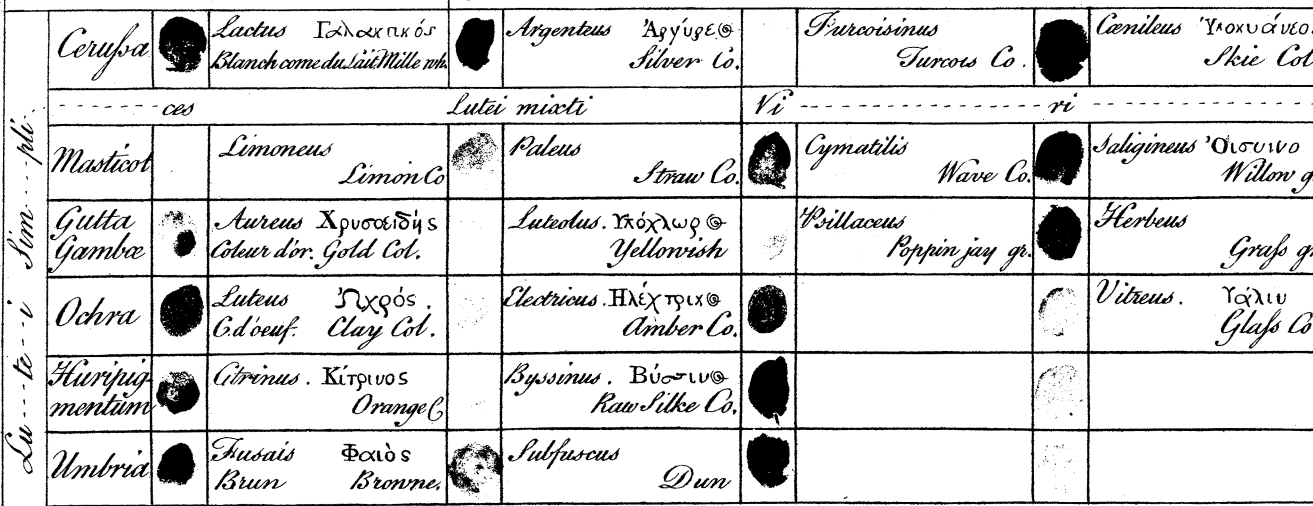 Cerussa
Lactus Γαλακτικός
Blanch come du Lait Mille wh.
Argenteus Ἀργύρεος
Silver Co.
Turcoisinus
Turcois Co.
Cæruleus Ὑποκυάνεος
Skie Col
ces
Lutei mixti
Vi ri
Masticot
Limoneus
Limon Co
Paleus
Straw Co.
Cymatilis
Wave Co.
Saligineus Οἰσυινο
Willow g
Gutta
Gambœ
Aureus Χρυσοειδής
Coleur d'or. Gold Col.
Luteolus. Ὑπόχλωρος
Yellowish
Psillaceus
Poppin jay gr.
Herbeus
Grass g
Ochra
Luteus Ὠχρός.
C.d'oeuf. Clay Col.
Electricus. Ηλέκτρικος
Amber Co.
Vitreus. Ὑάλιν
Glass Co
Huripig-
mentum
Citrinus. Κίτρινος
Orange C
Byssinus. Βύσσινος
Raw Silke Co.
Umbria
Fusais Φαιὸς
Brun Browne.
Subfuscus
Dun
Lu---te--i Sim----pli-